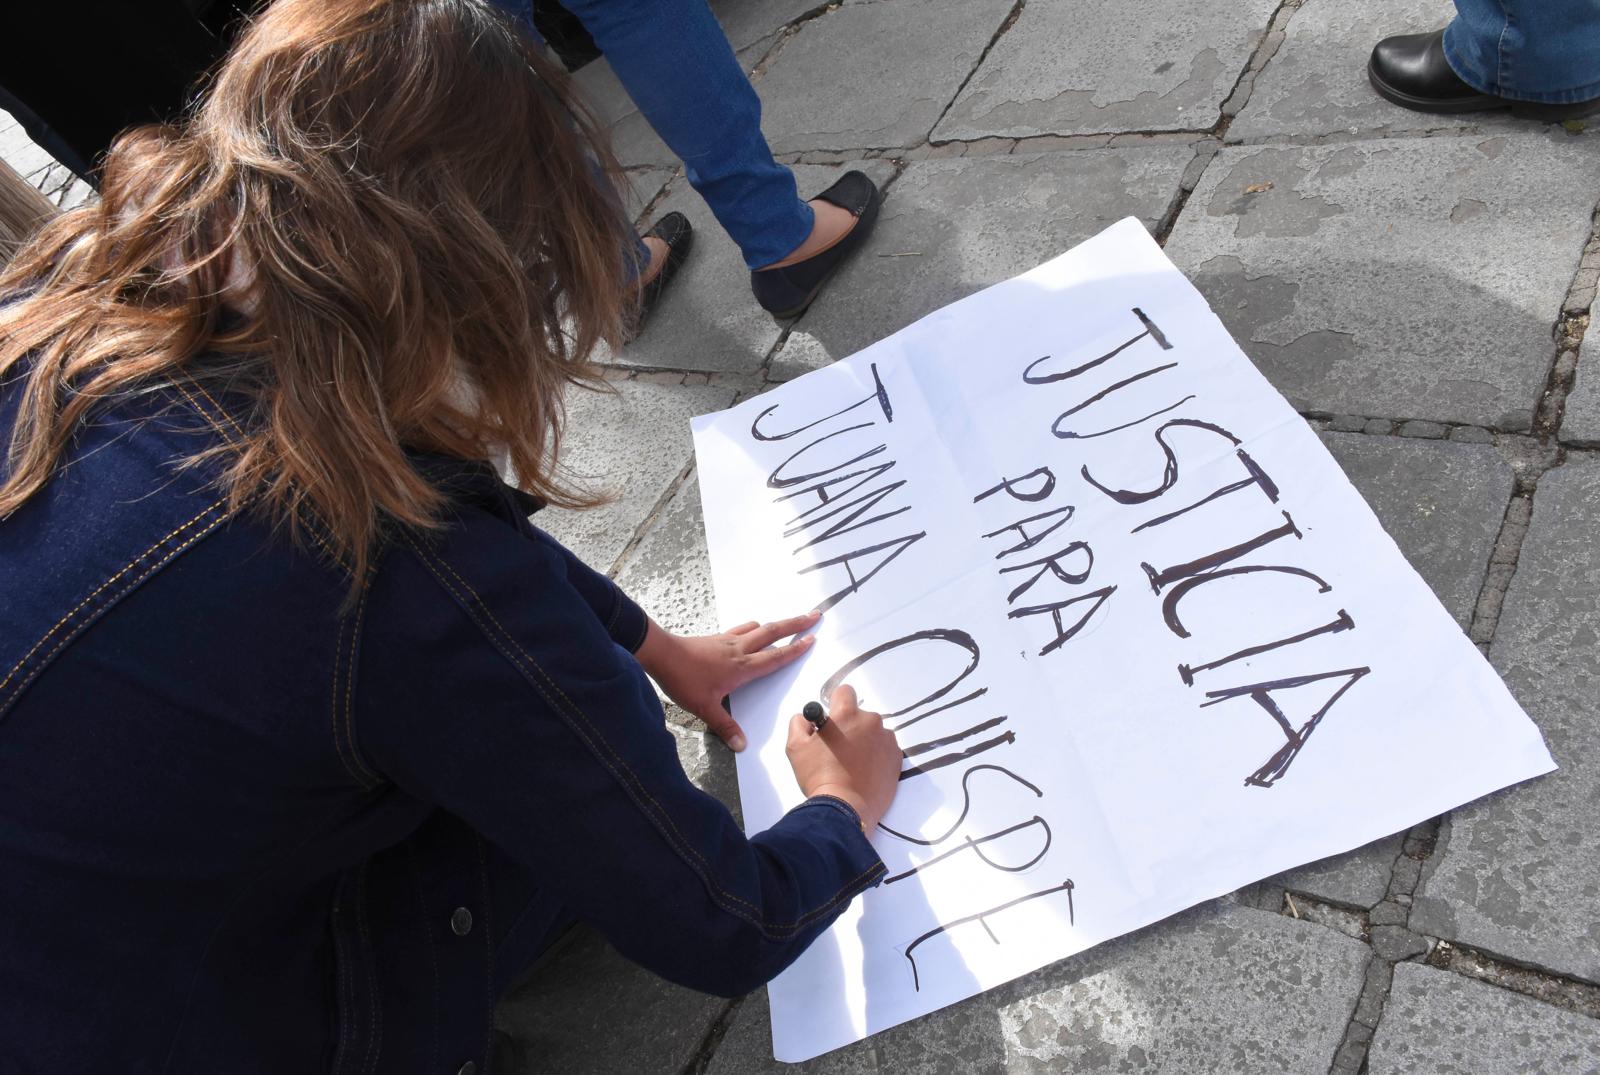 JUSTICIA
PARA
JUANA QUISPE